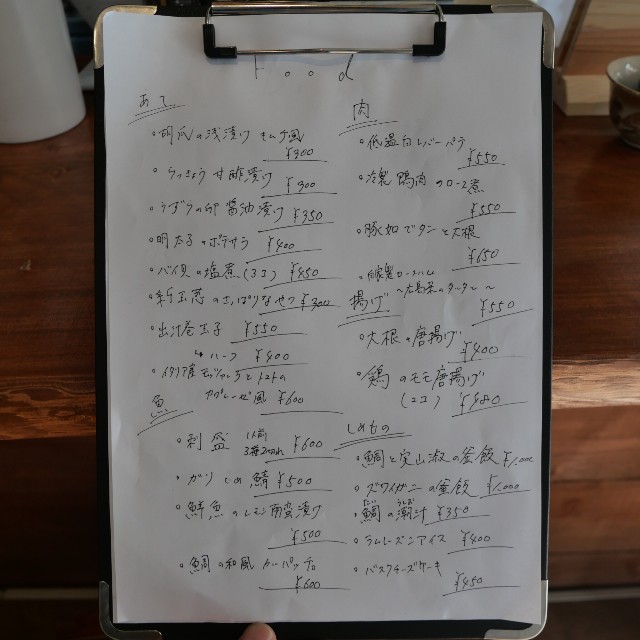 Food
あて
・胡瓜の浅漬け キムチ風
¥300
・らっきょう甘酢漬け
¥300
・うずらの卵 醤油漬け ¥350
・明太子のポテサラ
¥400
・バイ貝の塩煮(3コ) ¥450
・新玉葱のさっぱりなめつ ¥300
・出汁巻玉子 ¥550
↳ハーフ ¥400
・モッツァレラとトマトの
カプレーゼ風 ¥600
魚
・刺盛 1人前 3種2切れ ¥600
・ガリしめ鯖 ¥500
・鮮魚のレモン南蛮漬け
¥500
・鯛の和風カルパッチョ
¥600
肉
・低温白レバーパテ
¥550
・冷製 鴨肉のロース煮
¥550
・豚茹でタンと大根
¥650
・自家製ロースハム
¥550
揚げ
・大根の唐揚げ
¥400
・鶏のモモ唐揚げ
(2コ) ¥480
しめもの
・鯛と実山椒の釜飯 ¥1,000
・ズワイガニの釜飯 ¥1,000
・鯛の潮汁 ¥350
・ラムレーズンアイス ¥400
・バスクチーズケーキ
¥450